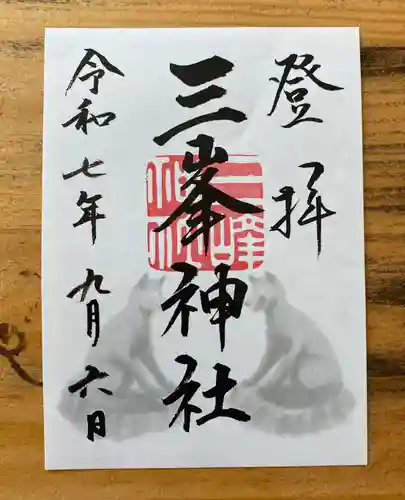 登拝
三峯神社
令和七年九月六日
三峰
神社